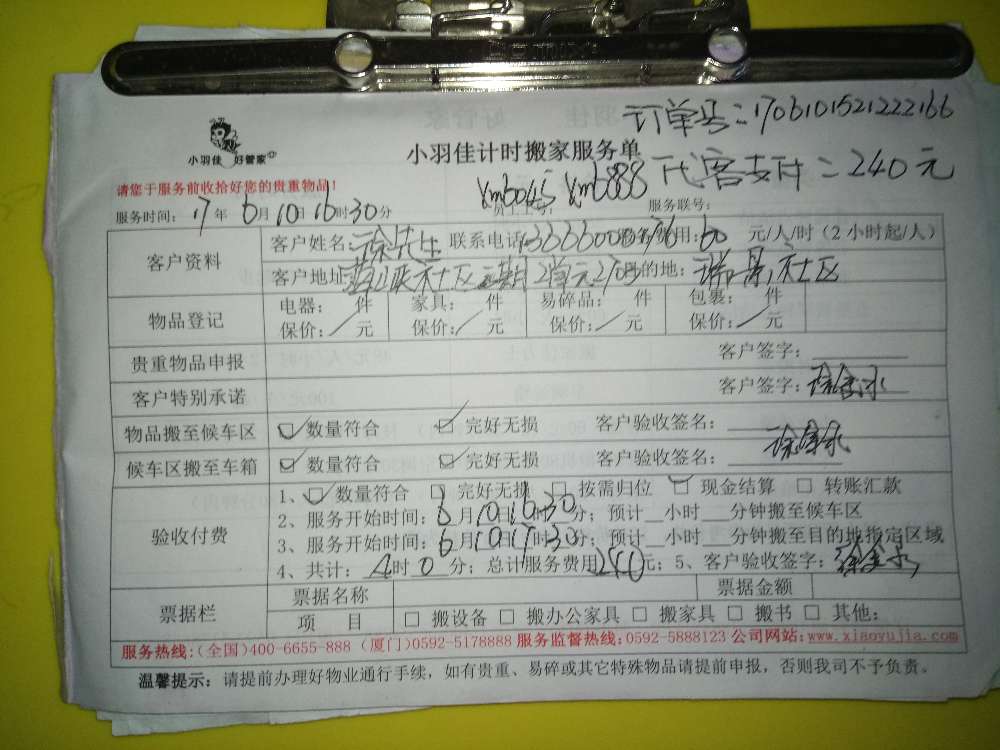 订单号=1706101521222166
小羽佳 好管家
小羽佳计时搬家服务单
代客支付=240元
请您于服务前收拾好您的贵重物品!
xm6045 xm6888
服务时间: 17年6月10日16时30分 员工工号: 服务联号:
客户资料 客户姓名: 徐先生 联系电话 费用: 60 元/人/时(2小时起/人)
客户地址 社区 期 2单元 的地: 瑞景社区
物品登记 电器: 件 家具: 件 易碎品: 件 包裹: 件
保价: / 元 保价: / 元 保价: / 元 保价: / 元
贵重物品申报 客户签字:
客户特别承诺 客户签字:
物品搬至候车区 ☑数量符合 ☑完好无损 客户验收签名:
候车区搬至车箱 ☑数量符合 ☑完好无损 客户验收签名:
验收付费 1、☑数量符合 □完好无损 □按需归位 ☑现金结算 □转账汇款
2、服务开始时间: 6月10日16时30分; 预计 小时 分钟搬至候车区
3、服务开始时间: 6月10日17时30分; 预计 小时 分钟搬至目的地指定区域
4、共计: 4时0分; 总计服务费用240元; 5、客户验收签字:
票据栏 票据名称 票据金额
项 目 □搬设备 □搬办公家具 □搬家具 □搬书 □其他:
服务热线:(全国)400-6655-888 (厦门)0592-5178888 服务监督热线:0592-5888123 公司网站:www.xiaoyujia.com
温馨提示: 请提前办理好物业通行手续, 如有贵重、易碎或其它特殊物品请提前申报, 否则我司不予负责。